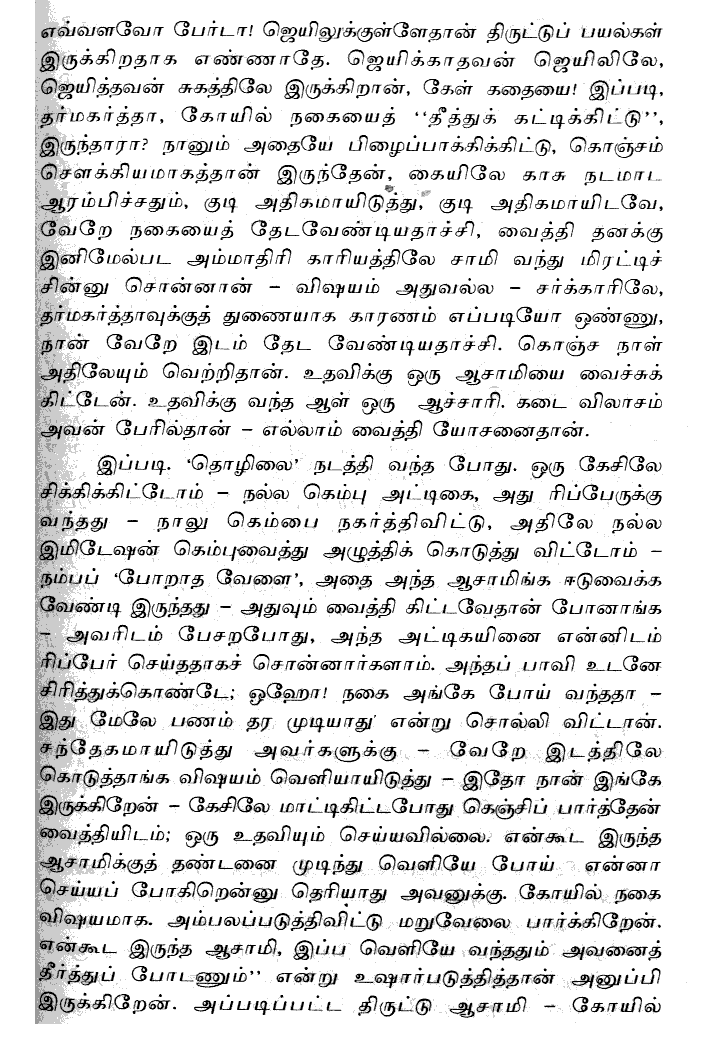 எவ்வளவோ பேர்டா! ஜெயிலுக்குள்ளேதான் திருட்டுப் பயல்கள்
இருக்கிறதாக எண்ணாதே. ஜெயிக்காதவன் ஜெயிலிலே,
ஜெயித்தவன் சுகத்திலே இருக்கிறான், கேள் கதையை! இப்படி,
தர்மகர்த்தா, கோயில் நகையைத் ‘‘தீத்துக் கட்டிக்கிட்டு’’,
இருந்தாரா? நானும் அதையே பிழைப்பாக்கிக்கிட்டு, கொஞ்சம்
சௌக்கியமாகத்தான் இருந்தேன், கையிலே காசு நடமாட
ஆரம்பிச்சதும், குடி அதிகமாயிடுத்து, குடி அதிகமாயிடவே,
வேறே நகையைத் தேடவேண்டியதாச்சி, வைத்தி தனக்கு
இனிமேல்பட அம்மாதிரி காரியத்திலே சாமி வந்து மிரட்டிச்
சின்னு சொன்னான் – விஷயம் அதுவல்ல – சர்க்காரிலே,
தர்மகர்த்தாவுக்குத் துணையாக காரணம் எப்படியோ ஒண்ணு,
நான் வேறே இடம் தேட வேண்டியதாச்சி. கொஞ்ச நாள்
அதிலேயும் வெற்றிதான். உதவிக்கு ஒரு ஆசாமியை வைச்சுக்
கிட்டேன். உதவிக்கு வந்த ஆள் ஒரு ஆச்சாரி. கடை விலாசம்
அவன் பேரில்தான் – எல்லாம் வைத்தி யோசனைதான்.
இப்படி. ‘தொழிலை’ நடத்தி வந்த போது. ஒரு கேசிலே
சிக்கிக்கிட்டோம் – நல்ல கெம்பு அட்டிகை, அது ரிப்பேருக்கு
வந்தது – நாலு கெம்பை நகர்த்திவிட்டு, அதிலே நல்ல
இமிடேஷன் கெம்புவைத்து அழுத்திக் கொடுத்து விட்டோம் –
நம்பப் ‘போறாத வேளை’, அதை அந்த ஆசாமிங்க ஈடுவைக்க
வேண்டி இருந்தது – அதுவும் வைத்தி கிட்டவேதான் போனாங்க
– அவரிடம் பேசறபோது, அந்த அட்டிகயினை என்னிடம்
ரிப்பேர் செய்ததாகச் சொன்னார்களாம். அந்தப் பாவி உடனே
சிரித்துக்கொண்டே; ஒஹோ! நகை அங்கே போய் வந்ததா –
இது மேலே பணம் தர முடியாது’ என்று சொல்லி விட்டான்.
சந்தேகமாயிடுத்து அவர்களுக்கு – வேறே இடத்திலே
கொடுத்தாங்க விஷயம் வெளியாயிடுத்து – இதோ நான் இங்கே
இருக்கிறேன் – கேசிலே மாட்டிகிட்டபோது கெஞ்சிப் பார்த்தேன்
வைத்தியிடம்; ஒரு உதவியும் செய்யவில்லை. என்கூட இருந்த
ஆசாமிக்குத் தண்டனை முடிந்து வெளியே போய் என்னா
செய்யப் போகிறென்னு தெரியாது அவனுக்கு. கோயில் நகை
விஷயமாக. அம்பலப்படுத்திவிட்டு மறுவேலை பார்க்கிறேன்.
என்கூட இருந்த ஆசாமி, இப்ப வெளியே வந்ததும் அவனைத்
தீர்த்துப் போடணும்’’ என்று உஷார்படுத்தித்தான் அனுப்பி
இருக்கிறேன். அப்படிப்பட்ட திருட்டு ஆசாமி – கோயில்